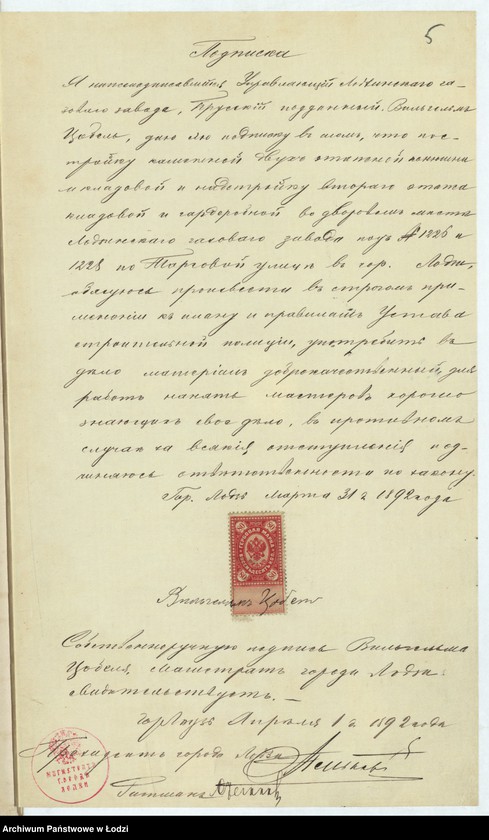 5
Подписка
Я нижеподписавшійся Управляющій Лодзинскаго га-
зоваго завода, Прусскій подданный Вильгельмъ
Цобель, даю сію подписку въ томъ, что пос-
тройку каменной двухэтажной конюшни
и кладовой и надстройку втораго этажа
кладовой и гардеробной во дворовомъ мѣстѣ
Лодзинскаго газоваго завода подъ № 1226 и
1228 по Торговой улицѣ въ гор. Лодзи,
обязуюсь произвести въ строгомъ при-
мѣненіи къ плану и правиламъ Устава
строительной полиціи, употребить въ
дѣло матеріалъ доброкачественный, для
работъ нанять мастеровъ хорошо
знающихъ свое дѣло, въ противномъ
случаѣ за всякія отступленія под-
чиняюсь отвѣтственности по закону.
Гор. Лодзь Марта 31 д 1892 года
50 50
Вильгельмъ Цобель
Собственноручную подпись Вильгельма
Цобеля, Магистратъ города Лодзи
свидѣтельствуетъ. —
Гор Лодзь Апрѣля 1 д 1892 года
Президентъ города Лодзи
МАГИСТРАТЪ
ГОРОДА
ЛОДЗИ
Archiwum Państwowe w Łodzi